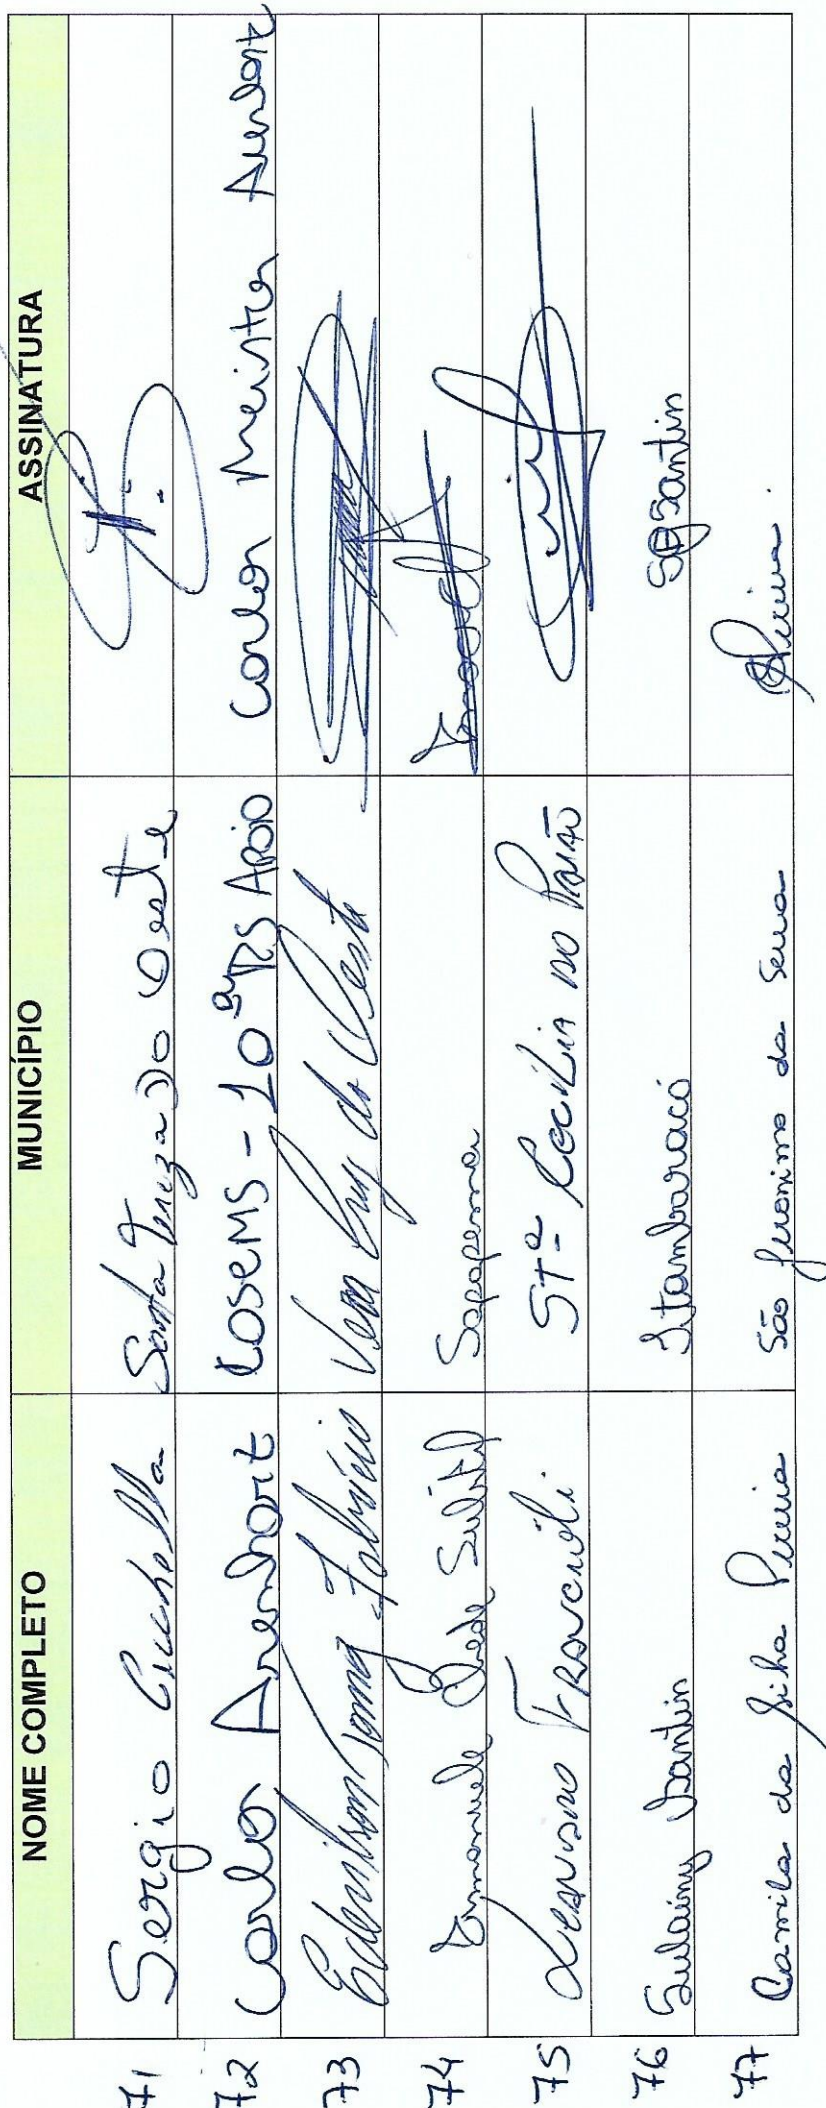 NOME COMPLETO MUNICÍPIO ASSINATURA
71 Sergio Santa Tereza do Oeste
72 Carlos Arenhart COSEMS - 10ª RS APOIO Carlos Meister Arenhart
73 Edenilson Fabricio Vera Cruz do Oeste
74 Emanuele Sapopema
75 Leandro St.ª Cecília do Pavão
76 Sulainy Santin Itambaracá Santin
77 Camila da Silva Pereira São Jeronimo da Serra Pereira